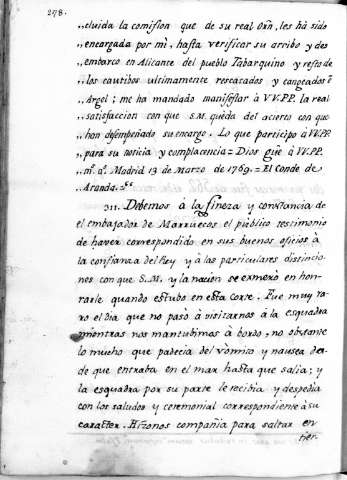 278.
„cluida la comision que de su real Orñ, les há sido
„encargada por mi, hasta verificar su arribo y des
„embarco en Alicante del pueblo Tabarquino y resto de
„los cautibos ultimamente rescatados y cangeados ẽ
„Argel; me ha mandado manifestar à VV.PP. la real
„satisfaccion con que S.M. queda del acierto con que
„han desempeñado su encargo. Lo que participo à VV.PP.
„para su noticia y complacencia = Dios güe à VV.PP.
„m.s a.s Madrid 13 de Marzo de 1769. = El Conde de
„Aranda.
311. Debemos à la fineza y constancia de
el embajador de Marruecos el publico testimonio
de haver correspondido en sus buenos oficios à
la confianza del Rey y à las particulares distincio
nes con que S.M. y la nacion se esmerò en hon-
rarle quando estubo en esta corte. Fue muy ra-
ro el dia que no pasó à visitarnos à la esquadra
mientras nos mantubimos à bordo, no obstante
lo mucho que padecia del vòmito y nausea des-
de que entraba en el mar hasta que salia; y
la esquadra por su parte le recibia y despedia
con los saludos y ceremonial correspondiente à su
caracter. Hizonos compañia para saltar en
tier-